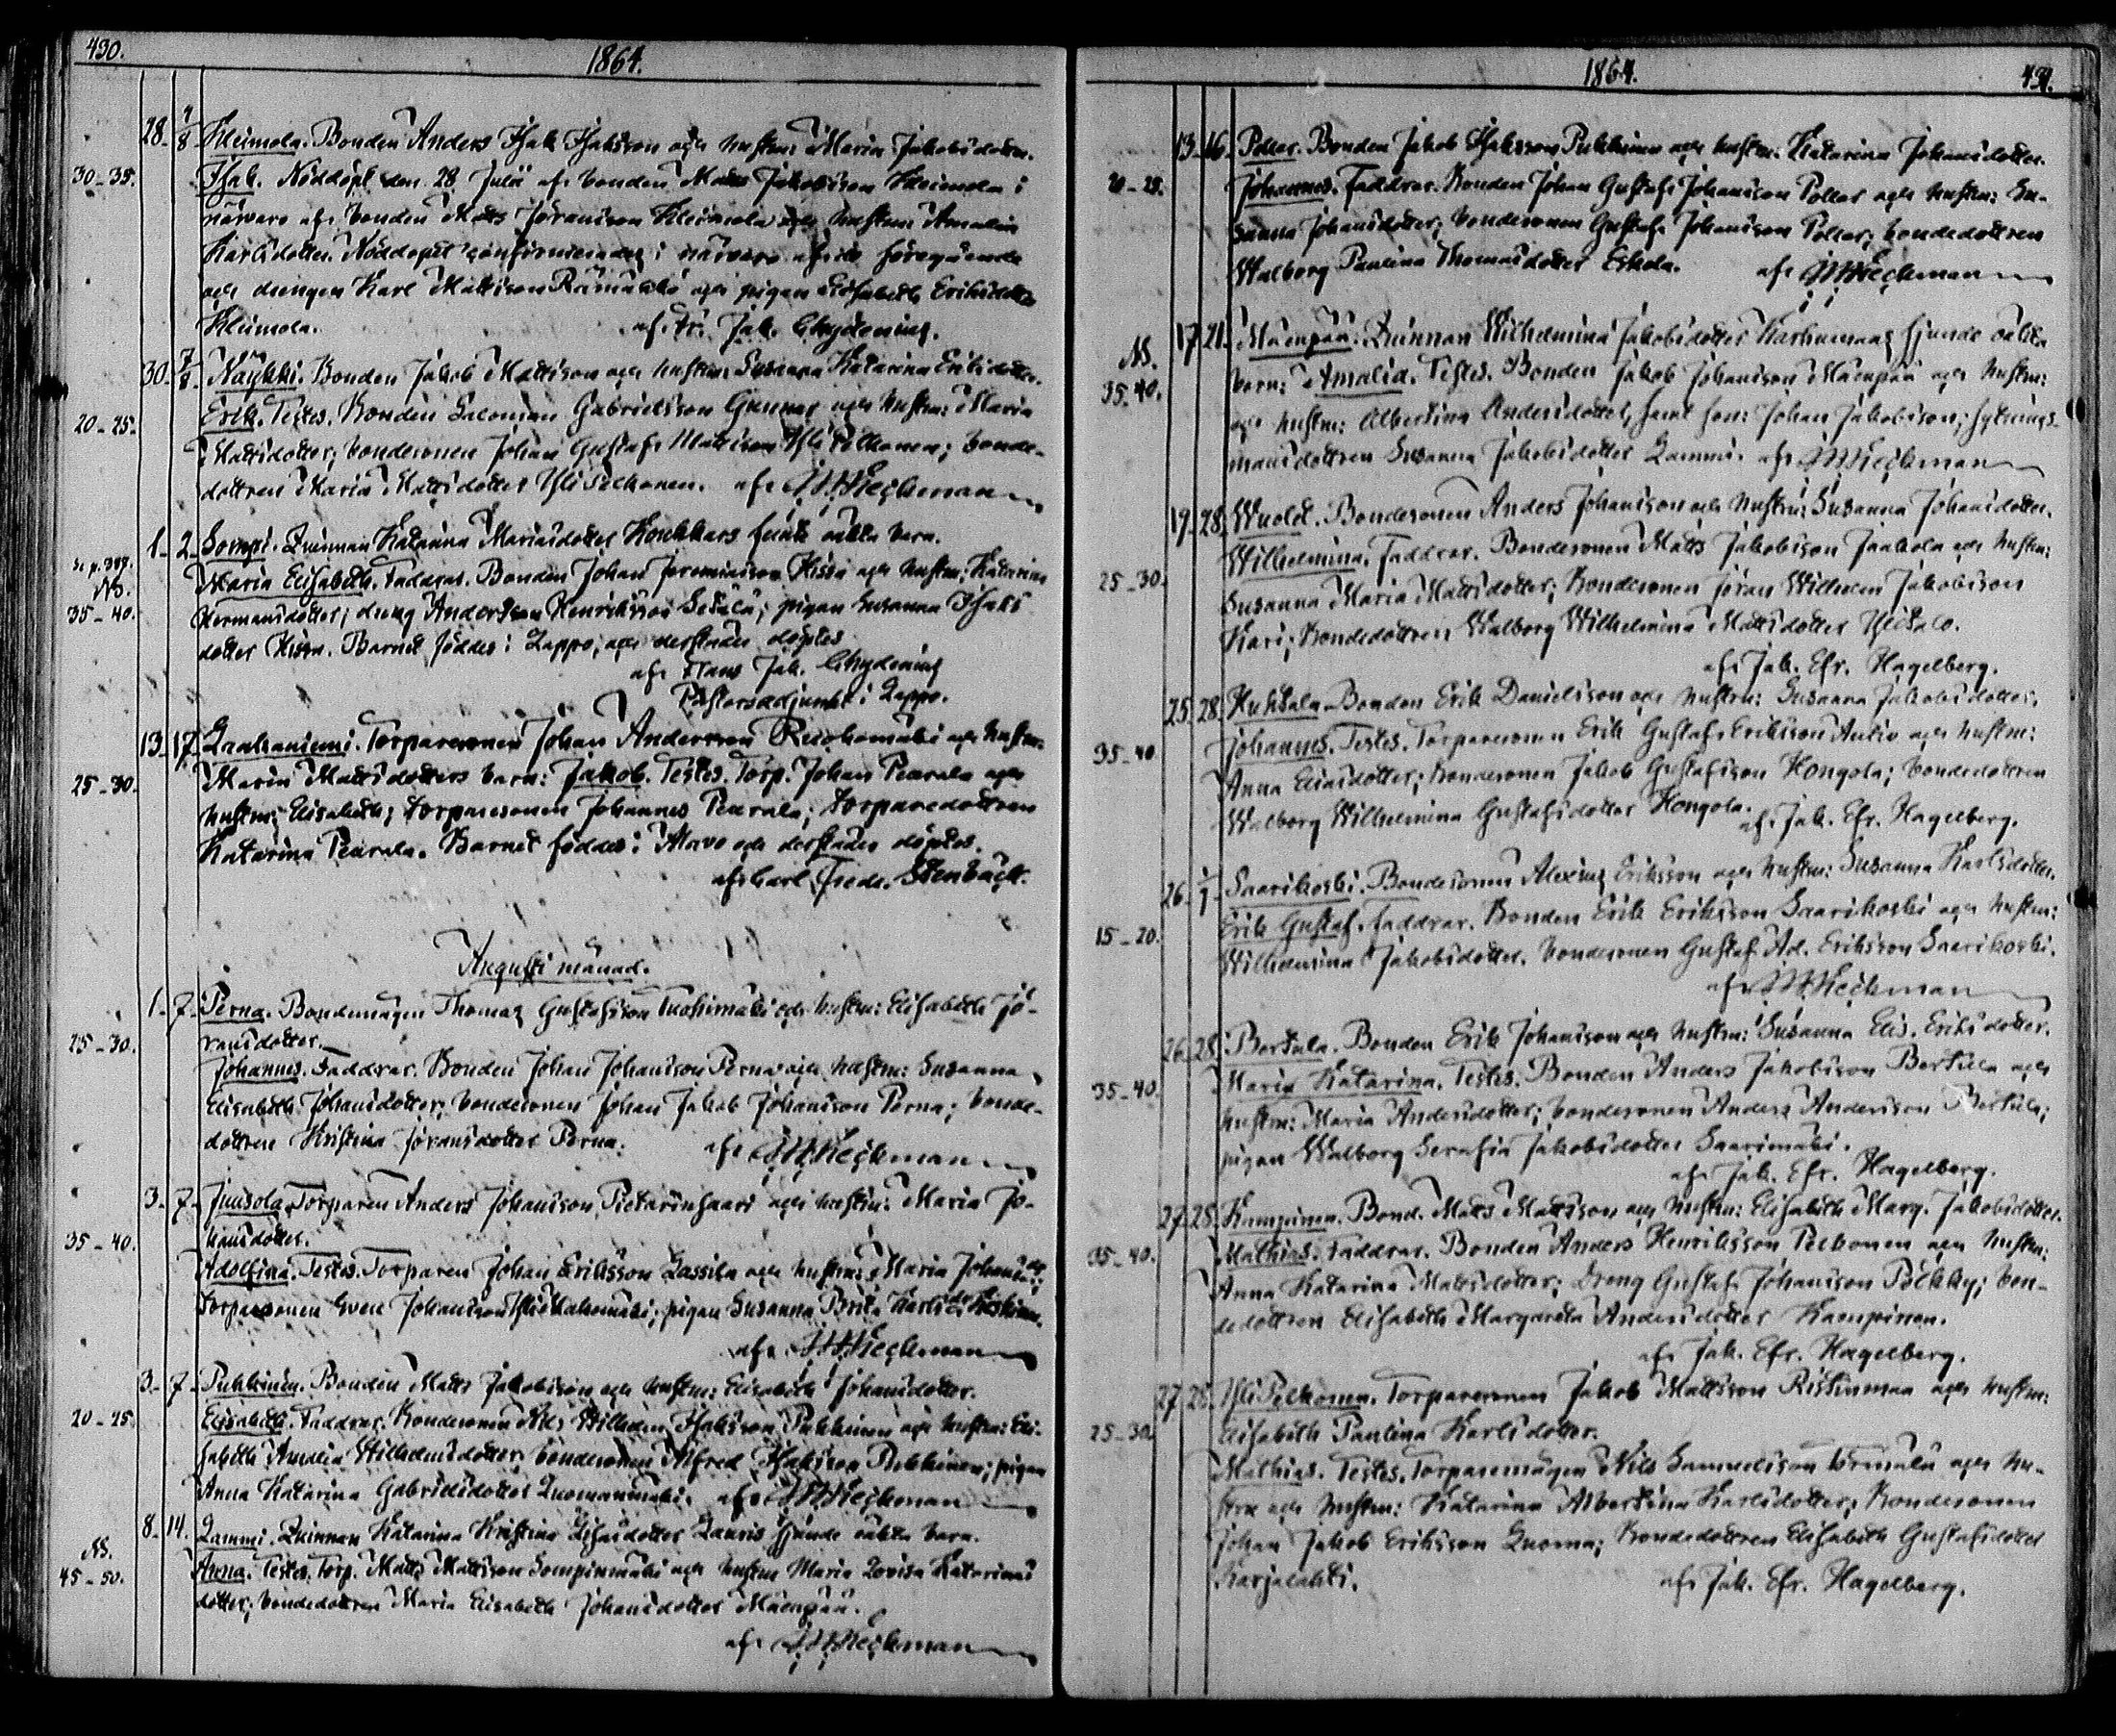 430.
1864.
28. 7/8 Kleimola. Bonden Anders Isak Isaksson och hustru: Maria Jakobsdotter.
30-35. Isak. Nöddöpt den 28 Julii af bonden Matts Jakobsson Kleimola i
närvaro af bonden Matts Jöransson Kleimola och hustru Amalia
Karlsdotter. Nöddopet confirmerades i närvaro af de föregående
och drengen Karl Mattsson Rämäkkö och pigan Elisabeth Eriksdotter
Kleimola. af Fr. Jak. Chydenius.
30. 7/8 Näykki. Bonden Jakob Mattsson och hustru: Susanna Katarina Eriksdotter.
20-25. Erik. Testes. Bonden Salomon Gabrielsson Gunnar och hustru: Maria
Mattsdotter; bondesonen Johan Gustaf Mattsson Yli Pelkonen; bonde-
dottren Maria Mattsdotter Yli Pelkonen. af Heckman
1. 2. Sorvari. Quinnan Katarina Mariasdotter Koukkars oäkta barn.
Se p. 389. NB. Maria Elisabeth. Faddrar. Bonden Johan Jeremiasson Hissa och hustru: Katarina
35-40. Hermansdotter; dreng Andersson Henriksson Setälä; pigan Susanna Isaks-
dotter Hissa. Barnet föddes i Lappo, och derstädes döptes
af Frans Jak. Chydenius
Pastorsadjunkt i Lappo.
13. 17. Laahaniemi. Torparesonen Johan Andersson Ruohomäki och hustru:
25-30. Maria Mattsdotters barn: Jakob. Testes. Torp. Johan Pearala och
hustru: Elisabeth; torparesonen Johannes Pearala; torparedottren
Katarina Pearala. Barnet föddes i Alavo och derstädes döptes.
af Carl Fredr. Stenbäck.
Augusti månad.
1. 7. Perna. Bondemågen Thomas Gustafsson Tuohimäki och hustru: Elisabeth Jö-
25-30. ransdotter.
Johannes. Faddrar. Bonden Johan Johansson Perna och hustru: Susanna
Elisabeth Johansdotter; bondesonen Johan Jakob Johansson Perna; bonde-
dottren Kristina Jöransdotter Perna. af Heckman
3. 7. Juusola. Torparen Anders Johansson Pietarinhaari och hustru: Maria Jo-
35-40. hansdotter.
Adolfina. Testes. Torparen Johan Eriksson Lassila och hustru: Maria Johansdr;
torparesonen Sven Johansson; pigan Susanna Brita Karlsdr Koskinen.
af Heckman
3. 7. Puhkinen. Bonden Matts Jakobsson och hustru: Elisabeth Johansdotter.
20-25. Elisabeth. Faddrar. Bondesonen Nils Wilhelm Isaksson Puhkinen och hustru: Eli-
sabeth Amalia Wilhelmsdotter; bondesonen Alfred Isaksson Puhkinen; pigan
Anna Katarina Gabrielsdotter Luomanmäki. af Heckman
8. 14. Lammi. Quinnan Katarina Kristina Esaiædotter Lauris sjunde oäkta barn.
NB. 45-50. Anna. Testes. Torp. Matts Mattsson Sompinmäki och hustru Maria Lovisa Katarinas
dotter; bondedottren Maria Elisabeth Johansdotter Mäenpää.
af Heckman
1864.
431.
13. 16. Poller. Bonden Jakob Isaksson Puhkinen och hustru: Katarina Johansdotter.
20-25. Johannes. Faddrar. Bonden Johan Gustaf Johansson Poller och hustru: Su-
sanna Johansdotter; bondesonen Gustaf Johansson Poller; bondedottren
Walborg Paulina Thomasdotter Eskola. af Heckman
17. 21. Mäenpää. Quinnan Wilhelmina Jakobsdotter Karhumaas sjunde oäkta
NB. 35-40. barn: Amalia. Testes. Bonden Jakob Johansson Mäenpää och hustru:
och hustru: Albertina Andersdotter, samt son: Johan Jakobsson; hytnings-
mansdottren Susanna Jakobsdotter Lammi. af Heckman
19. 28. Wuolet. Bondesonen Anders Johansson och hustru: Susanna Johansdotter.
25-30. Wilhelmina. Faddrar. Bondesonen Matts Jakobsson Jaakola och hustru:
Susanna Maria Mattsdotter; Bondesonen Jöran Wilhelm Jakobsson
Kari; Bondedottren Walborg Wilhelmina Mattsdotter Ylitalo.
af Jak. Efr. Hagelberg.
25. 28. Huhtala. Bonden Erik Danielsson och hustru: Susanna Jakobsdotter.
35-40. Johannes. Testes. Torparesonen Erik Gustaf Eriksson Autio och hustru:
Anna Eliasdotter; bondesonen Jakob Gustafsson Hongola; bondedottren
Walborg Wilhelmina Gustafsdotter Hongola. af Jak. Efr. Hagelberg.
26. 1/7 Saarikoski. Bondesonen Alexius Eriksson och hustru: Susanna Karlsdotter.
15-20. Erik Gustaf. Faddrar. Bonden Erik Eriksson Saarikoski och hustru:
Wilhelmina Jakobsdotter. bondesonen Gustaf Ad. Eriksson Saarikoski.
af Heckman
26. 28. Bertula. Bonden Erik Johansson och hustru: Susanna Elis. Eriksdotter.
35-40. Maria Katarina. Testes. Bonden Anders Jakobsson Bertula och
hustru: Maria Andersdotter; bondesonen Anders Andersson Bertula;
pigan Walborg Serafia Jakobsdotter Saarimäki.
af Jak. Efr. Hagelberg.
27. 28. Kampinen. Bond. Matts Mattsson och hustru: Elisabeth Marg. Jakobsdotter.
35-40. Mathias. Faddrar. Bonden Anders Henriksson Pelkonen och hustru:
Anna Katarina Mattsdotter; Dreng Gustaf Johansson Pöchky; bon-
dedottren Elisabeth Margareta Andersdotter Kampinen.
af Jak. Efr. Hagelberg.
27. 28. Yli Pelkonen. Torparesonen Jakob Mattsson Ristinmaa och hustru:
25-30. Elisabeth Paulina Karlsdotter.
Mathias. Testes. Torparemågen Nils Samuelsson Ormälä och hu-
stru och hustru: Katarina Albertina Karlsdotter; Bondesonen
Johan Jakob Eriksson Luoma; Bondedottren Elisabeth Gustafsdotter
Karjalahti. af Jak. Efr. Hagelberg.